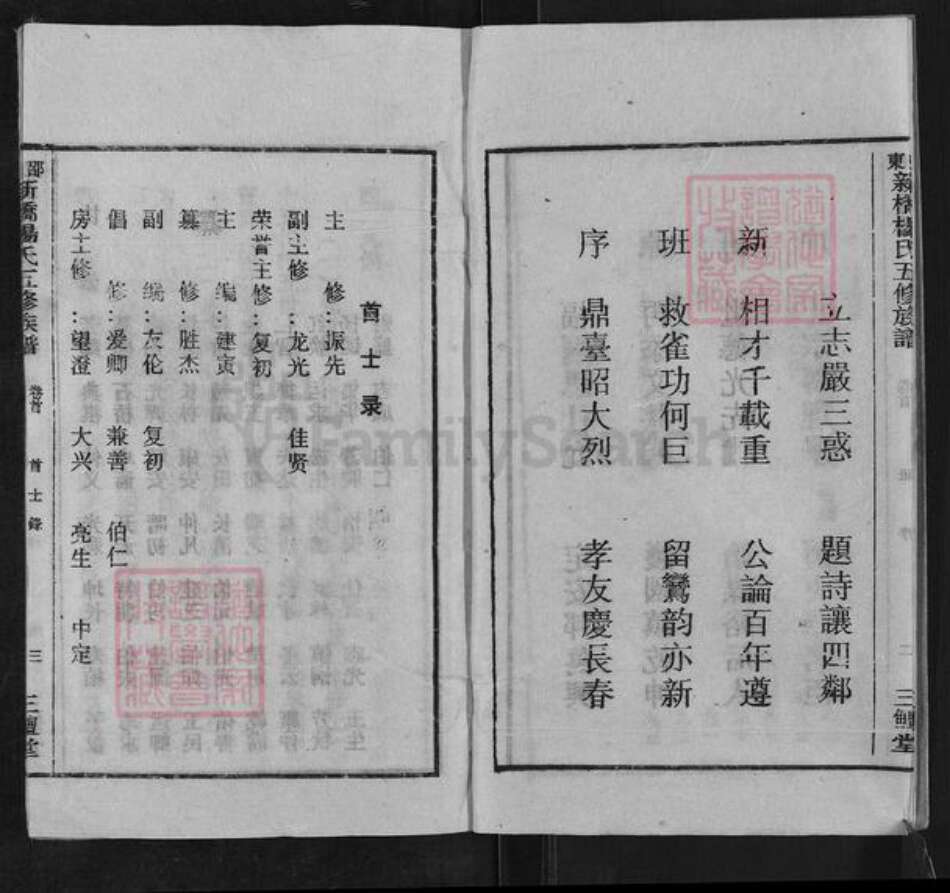 新橋楊氏五修族譜
二
三鱣堂
立志嚴三惑 題詩讓四鄰
新 相才千載重 公論百年遵
班 救雀功何巨 留鸞韵亦新
序 鼎臺昭大烈 孝友慶長春
首士录
主修:振先
副主修:龙光 佳贤
荣誉主修:复初
主编:建寅
纂修:胜杰
副编:友伦 复初
倡修:爱卿 兼善 伯仁
房主修:望澄 大兴 亮生 中定
邵 新橋楊氏五修族譜
卷首
首士錄
三
三鱣堂
FamilySearch